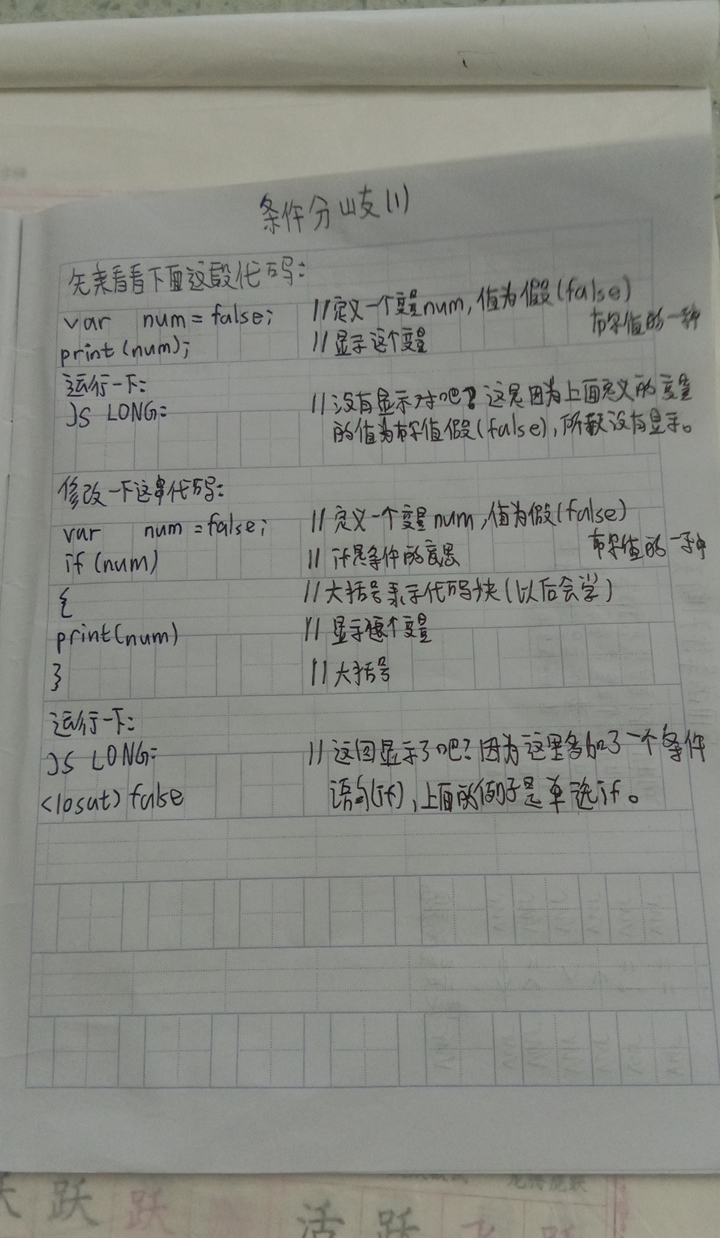 条件分岐(1)
先来看看下面这段代码:
var num = false; //定义一个变量num,值为假(false)
布尔值的一种
print(num); //显示这个变量
运行一下:
JS LONG: //没有显示对吧?这是因为上面定义的变量
的值为布尔值假(false),所以没有显示。
修改一下这串代码:
var num = false; //定义一个变量num,值为假(false)
布尔值的一种
if(num) //if是条件的意思
{ //大括号表示代码块(以后会学)
print(num) //显示这个变量
} //大括号
运行一下:
JS LONG: //这回显示了吧?因为这里多加了一个条件
<losat) false 语句(if),上面的例子是单选if。
跃 跃
活 跃